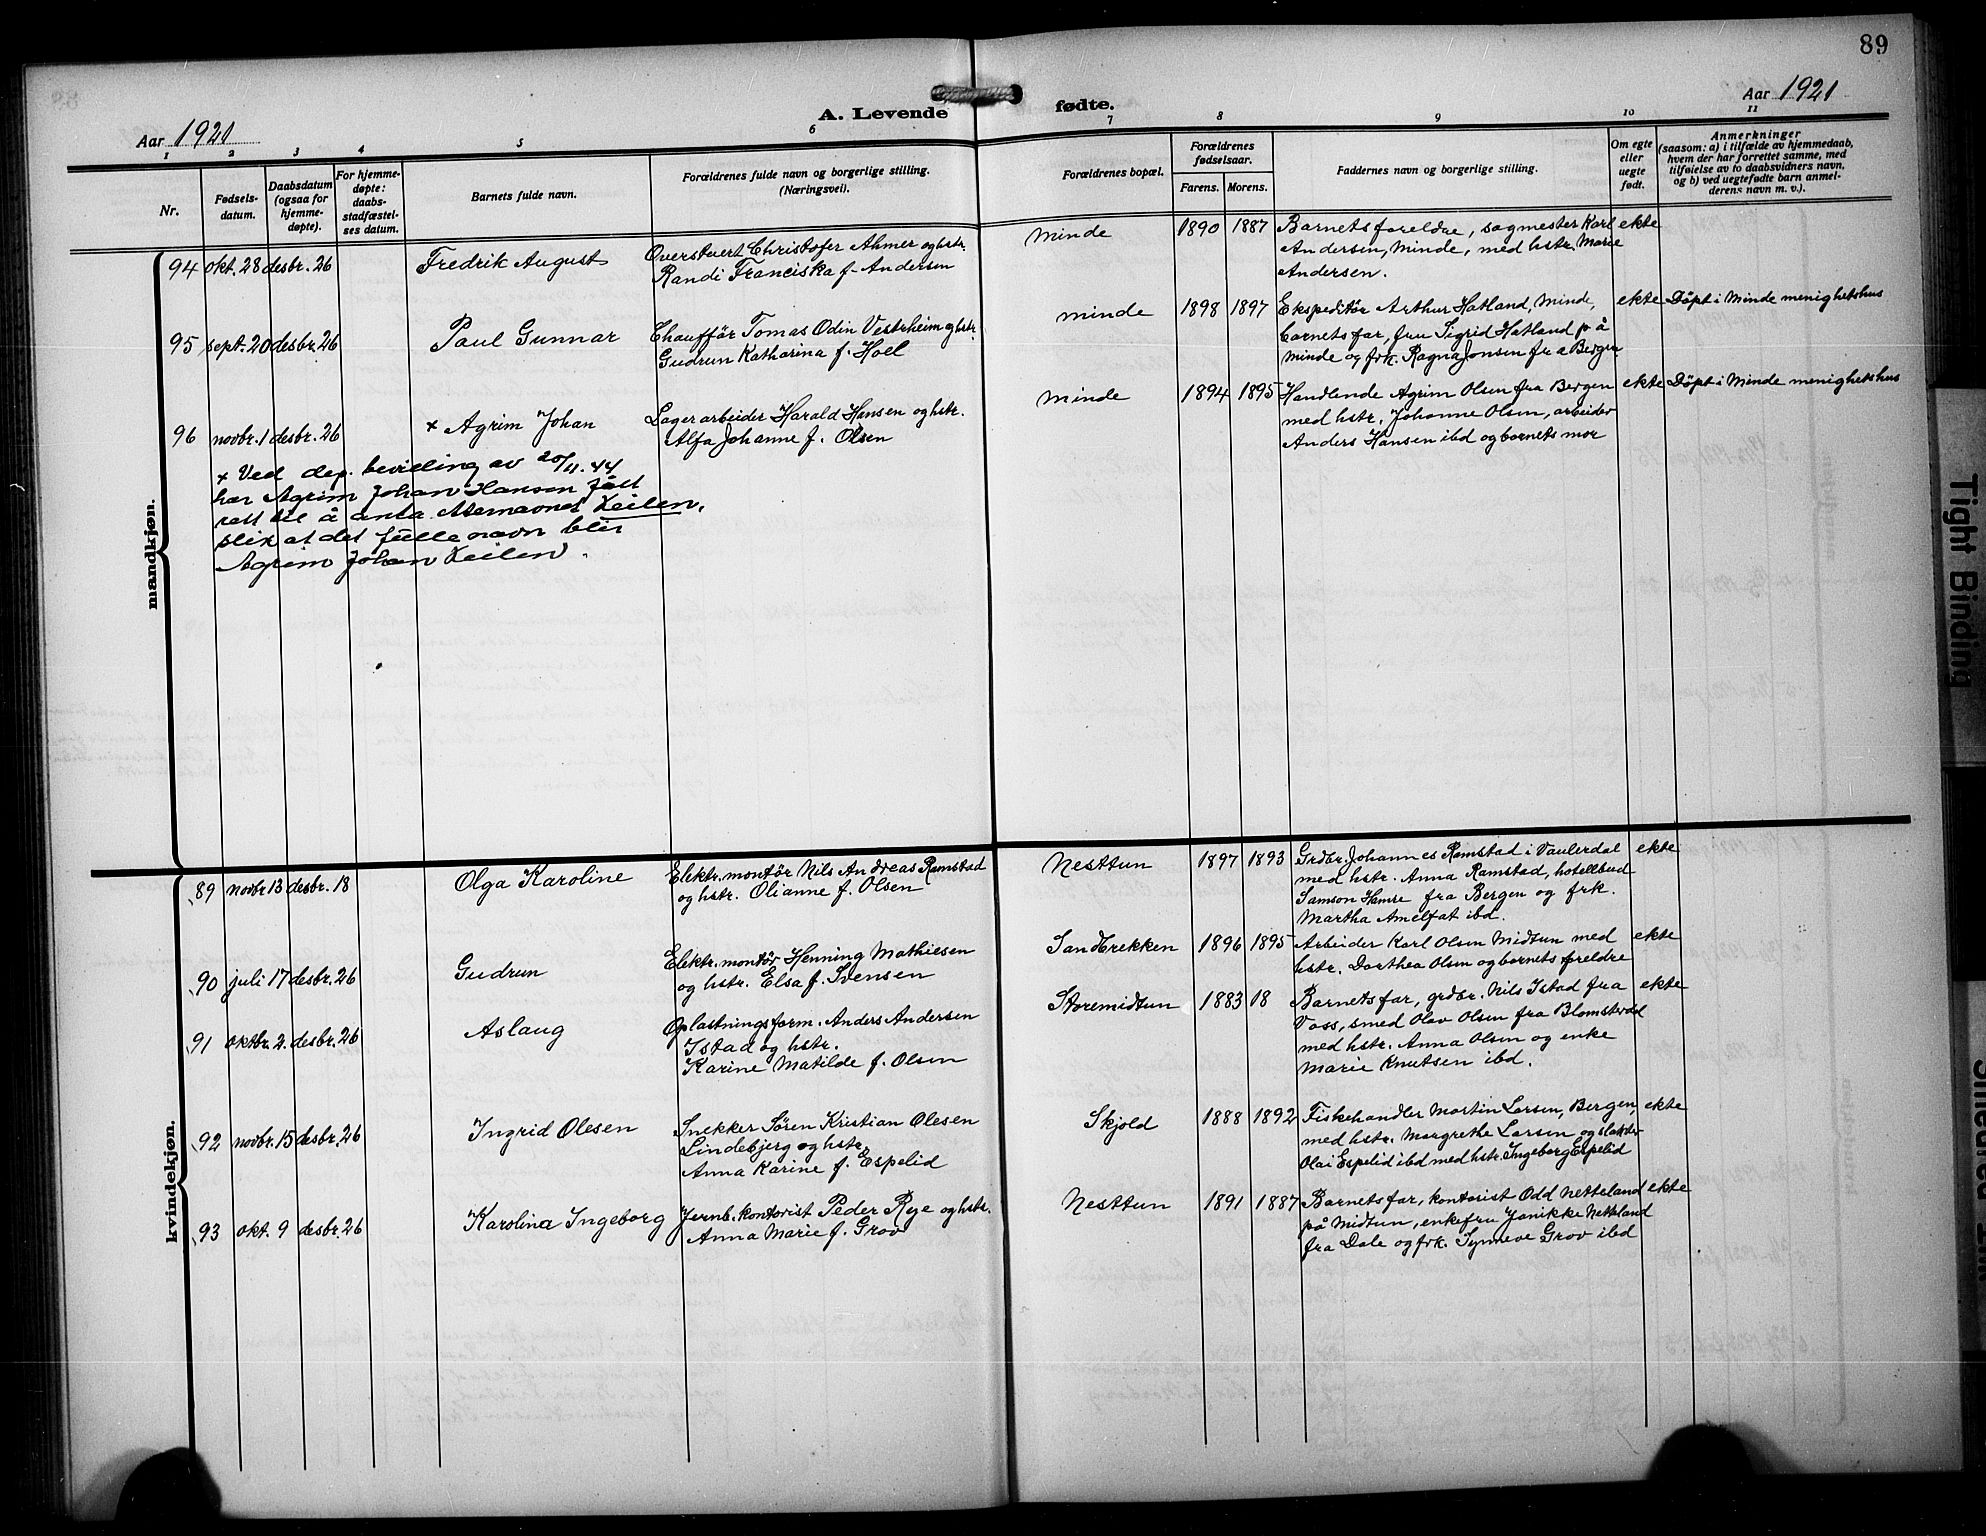 89
Aar 1921
A. Levende fødte.
Aar 1921
1 2 3 4 5 6 7 8 9 10 11
Nr.
Fødsels-
datum.
Daabsdatum
(ogsaa for
hjemme-
døpte).
For hjemme-
døpte:
daabs-
stadfæstel-
ses datum.
Barnets fulde navn.
Forældrenes fulde navn og borgerlige stilling.
(Næringsvei).
Forældrenes bopæl.
Forældrenes
fødselsaar.
Farens. Morens.
Faddernes navn og borgerlige stilling.
Om egte
eller
uegte
født.
Anmerkninger
(saasom: a) i tilfælde av hjemmedaab,
hvem der har forrettet samme, med
tilføielse av to daabsvidners navn,
og b) ved uegtefødte barn anmel-
derens navn m. v.).
mandkjøn.
94 okt. 28 desbr. 26
Fredrik August
Overstuert Christofer Ahmer og hstr.
Randi Franciska f. Andersen
Minde
1890 1887
Barnets foreldre, sagmester Karl
Andersen, Minde, med hstr. Marie
Andersen.
ekte
95 sept. 20 desbr. 26
Paul Gunnar
Chauffór Tomas Odin Vestrheim og hstr.
Gudrun Katharina f. Hoel
Minde
1898 1897
Ekspeditór Arthur Hatland, Minde,
barnets far, fru Sigrid Hatland på
Minde og frk. Ragna Jonsen fra Bergen
ekte
Döpt i Minde menighetshus
96 novbr. 1 desbr. 26
x Agrim Johan
Lagerarbeider Harald Hansen og hstr.
Alfa Johanne f. Olsen
Minde
1894 1895
Handlende Agrim Olsen fra Bergen
med hstr. Johanne Olsen, arbeider
Anders Hansen ibd og barnets mor
ekte
Döpt i Minde menighetshus
x Ved dep. bevilling av 20/11.44
har Agrim Johan Hansen fått
rett til å anta etternavnet Leilen,
slik at det fulle navn blir
Agrim Johan Leilen.
kvindekjøn.
89 novbr. 13 desbr. 18
Olga Karoline
Elektr. montør Nils Andreas Ramstad
og hstr. Olianne f. Olsen
Nesttun
1897 1893
Grdbr. Johannes Ramstad i Vaulerdal
med hstr. Anna Ramstad, hotellbud
Samson Hamre fra Bergen og frk.
Martha Amelfat ibd.
ekte
90 juli 17 desbr. 26
Gudrun
Elektr. montør Henning Mathiesen
og hstr. Elsa f. Svensen
Sandbrekken
1896 1895
Arbeider Karl Olsen Midtun med
hstr. Dorthea Olsen og barnets foreldre
ekte
91 oktbr. 2. desbr. 26
Aslaug
Oplastningsform. Anders Andersen
Istad og hstr.
Karine Matilde f. Olsen
Storemidtun
1883 18
Barnets far, grdbr. Nils Istad fra
Voss, smed Olav Olsen fra Blomsterdal
med hstr. Anna Olsen og enke
Marie Knutsen ibd.
ekte
92 novbr. 15 desbr. 26
Ingrid Olesen
Snekker Sören Kristian Olesen
Lindebjerg og hstr.
Anna Karine f. Espelid
Skjold
1888 1892
Fiskehandler Martin Larsen, Bergen,
med hstr. Margrethe Larsen og slakter
Olai Espelid ibd med hstr. Ingeborg Espelid
ekte
93 okt. 9 desbr. 26
Karolina Ingeborg
Jernb. kontorist Peder Reye og hstr.
Anna Marie f. Grov
Nesttun
1891 1887
Barnets far, kontorist Odd Netteland
på Midtun, enkefru Janikke Netteland
fra Dale og frk. Synneve Grov ibd
ekte
Tight Binding